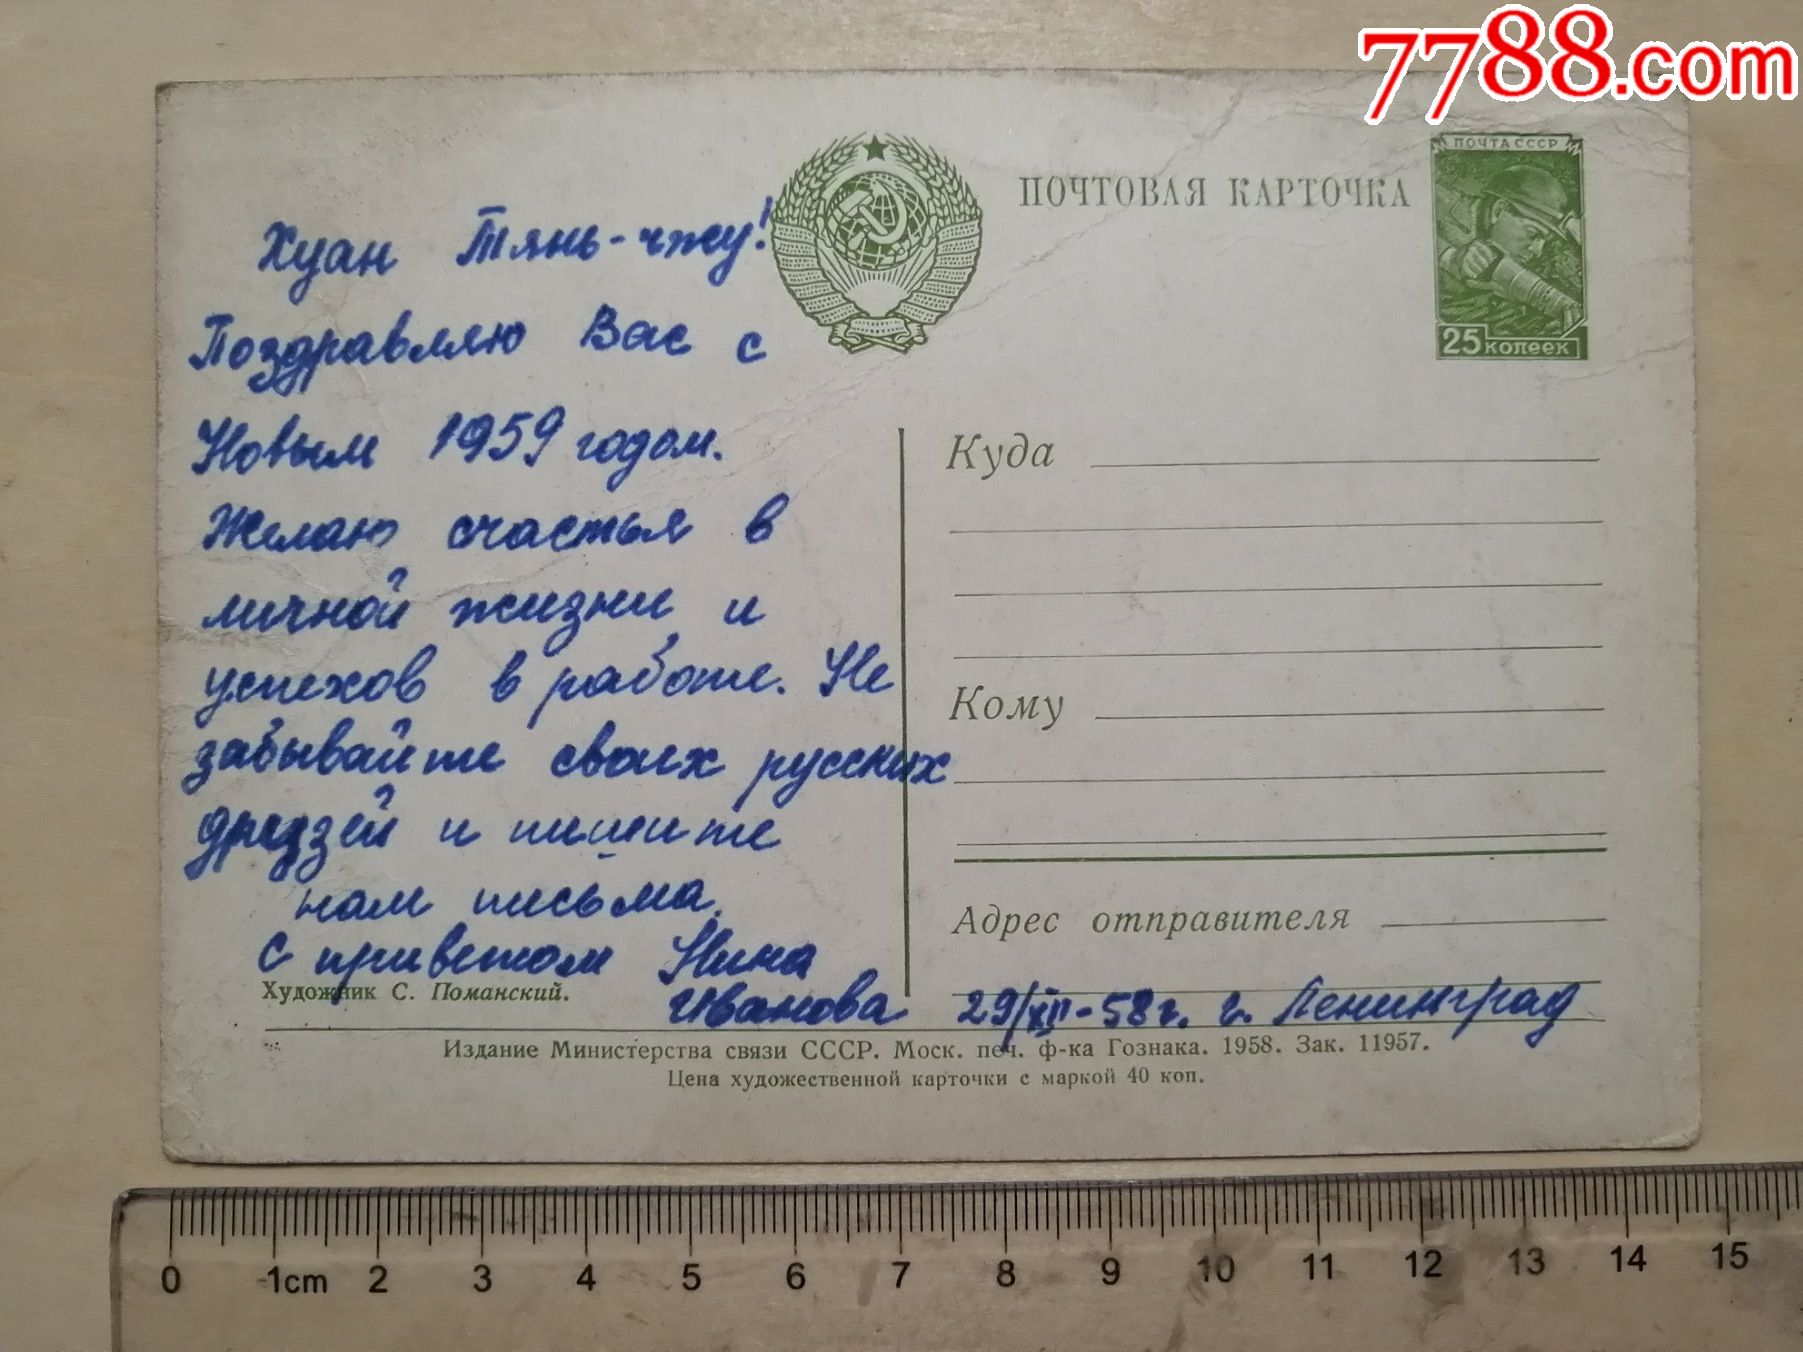 7788.com
ПОЧТА СССР
ПОЧТОВАЯ КАРТОЧКА
25 копеек
Хуан Тянь-чжу!
Поздравляю Вас с
Новым 1959 годом.
Желаю счастья в
личной жизни и
успехов в работе. Не
забывайте своих русских
друзей и пишите
нам письма.
С приветом Нина
Иванова
Художник С. Поманский.
Куда
Кому
Адрес отправителя
29/XII-58г. г. Ленинград
Издание Министерства связи СССР. Моск. печ. ф-ка Гознака. 1958. Зак. 11957.
Цена художественной карточки с маркой 40 коп.
0 1cm 2 3 4 5 6 7 8 9 10 11 12 13 14 15